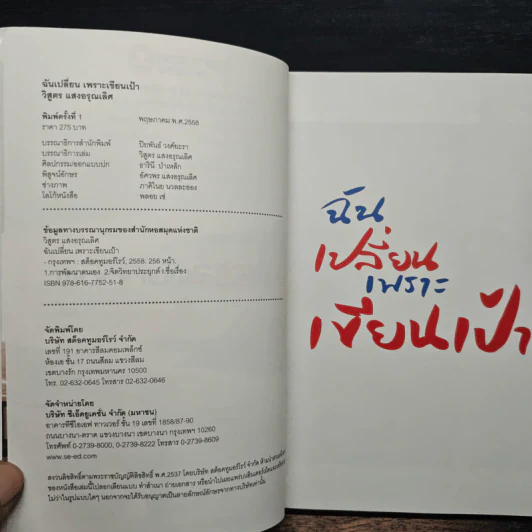 ฉันเปลี่ยน เพราะเขียนเป้า
วิสูตร แสงอรุณเลิศ
พิมพ์ครั้งที่ 1 พฤษภาคม พ.ศ.2558
ราคา 275 บาท
บรรณาธิการสำนักพิมพ์ ปิยพันธ์ วงศ์ยะรา
บรรณาธิการเล่ม วิสูตร แสงอรุณเลิศ
ศิลปกรรม/ออกแบบปก อาริณี ป่าเหล็ก
พิสูจน์อักษร อัศวพร แสงอรุณเลิศ
ช่างภาพ ภาคิไนย นวลละออง
โลโก้หนังสือ พลอย เซ่
ข้อมูลทางบรรณานุกรมของสำนักหอสมุดแห่งชาติ
วิสูตร แสงอรุณเลิศ
ฉันเปลี่ยน เพราะเขียนเป้า
- กรุงเทพฯ : สต็อคทูมอร์โรว์, 2558. 256 หน้า.
1.การพัฒนาตนเอง 2.จิตวิทยาประยุกต์ I.ชื่อเรื่อง
ISBN 978-616-7752-51-8
จัดพิมพ์โดย
บริษัท สต็อคทูมอร์โรว์ จำกัด
เลขที่ 191 อาคารสีลมคอมเพล็กซ์
ห้องเอ ชั้น 17 ถนนสีลม แขวงสีลม
เขตบางรัก กรุงเทพมหานคร 10500
โทร. 02-632-0645 โทรสาร 02-632-0646
จัดจำหน่ายโดย
บริษัท ซีเอ็ดยูเคชั่น จำกัด (มหาชน)
อาคารทีซีไอเอฟ ทาวเวอร์ ชั้น 19 เลขที่ 1858/87-90
ถนนบางนา-ตราด แขวงบางนา เขตบางนา กรุงเทพฯ 10260
โทรศัพท์ 0-2739-8000, 0-2739-8222 โทรสาร 0-2739-8609
www.se-ed.com
สงวนลิขสิทธิ์ตามพระราชบัญญัติลิขสิทธิ์ พ.ศ.2537 โดยบริษัท สต็อคทูมอร์โรว์ จำกัด
ของหนังสือเล่มนี้ไปลอกเลียนแบบ ทำสำเนา ถ่ายเอกสาร หรือนำไปเผยแพร่
ไม่ว่าในรูปแบบใดๆ นอกจากจะได้รับอนุญาตเป็นลายลักษณ์อักษรจากทางบริษัทเท่านั้น
ฉัน
เปลี่ยน
เพราะ
เขียนเป้า